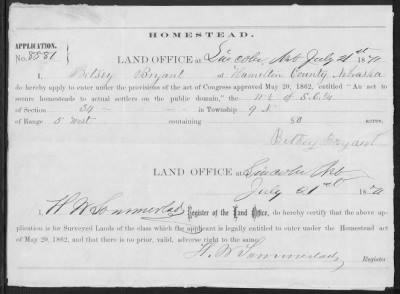 HOMESTEAD.
APPLICATION
No. 8581
LAND OFFICE at Lincoln Neb July 21st 187
I, Betsey Bryant of Hamilton County Nebraska
do hereby apply to enter under the provisions of the act of Congress approved May 20, 1862, entitled "An act to
secure homesteads to actual settlers on the public domain," the of S.E.¼
of Section 34 in Township 9 N
of Range 5 West containing 80 acres.
Betsey Bryant
LAND OFFICE at Lincoln Neb
July 21st 187
I, H W Sommerlad, Register of the Land Office, do hereby certify that the above appli-
cation is for Surveyed Lands of the class which the applicant is legally entitled to enter under the Homestead act
of May 20, 1862, and that there is no prior, valid, adverse right to the same.
H. W Sommerlad,
Register